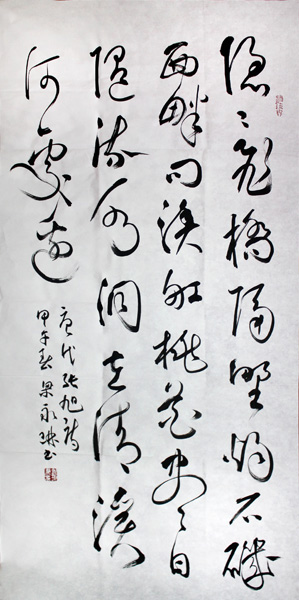 隱〻飛橋隔野烟石磯
西畔問漁船桃花盡日
隨流水洞在清溪
何處邊
唐代張旭詩
甲午春梁永書